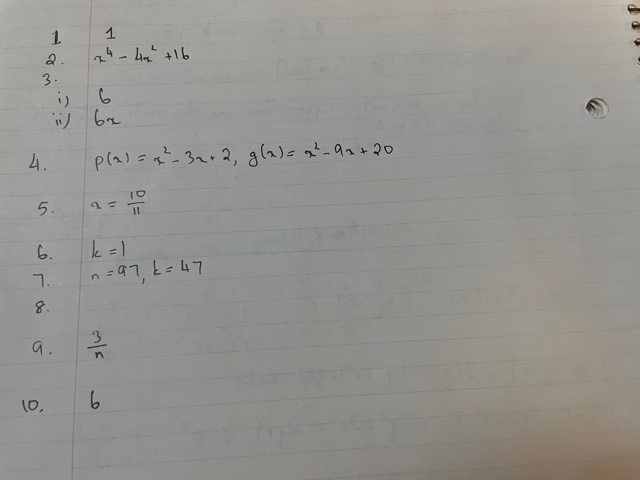 1 1
2. x⁴ - 4x² + 16
3.
i) 6
ii) 6x
4. p(x) = x² - 3x + 2, g(x) = x² - 9x + 20
5. x = 10/11
6. k = 1
7. n = 97, k = 47
8.
9. 3/n
10. 6